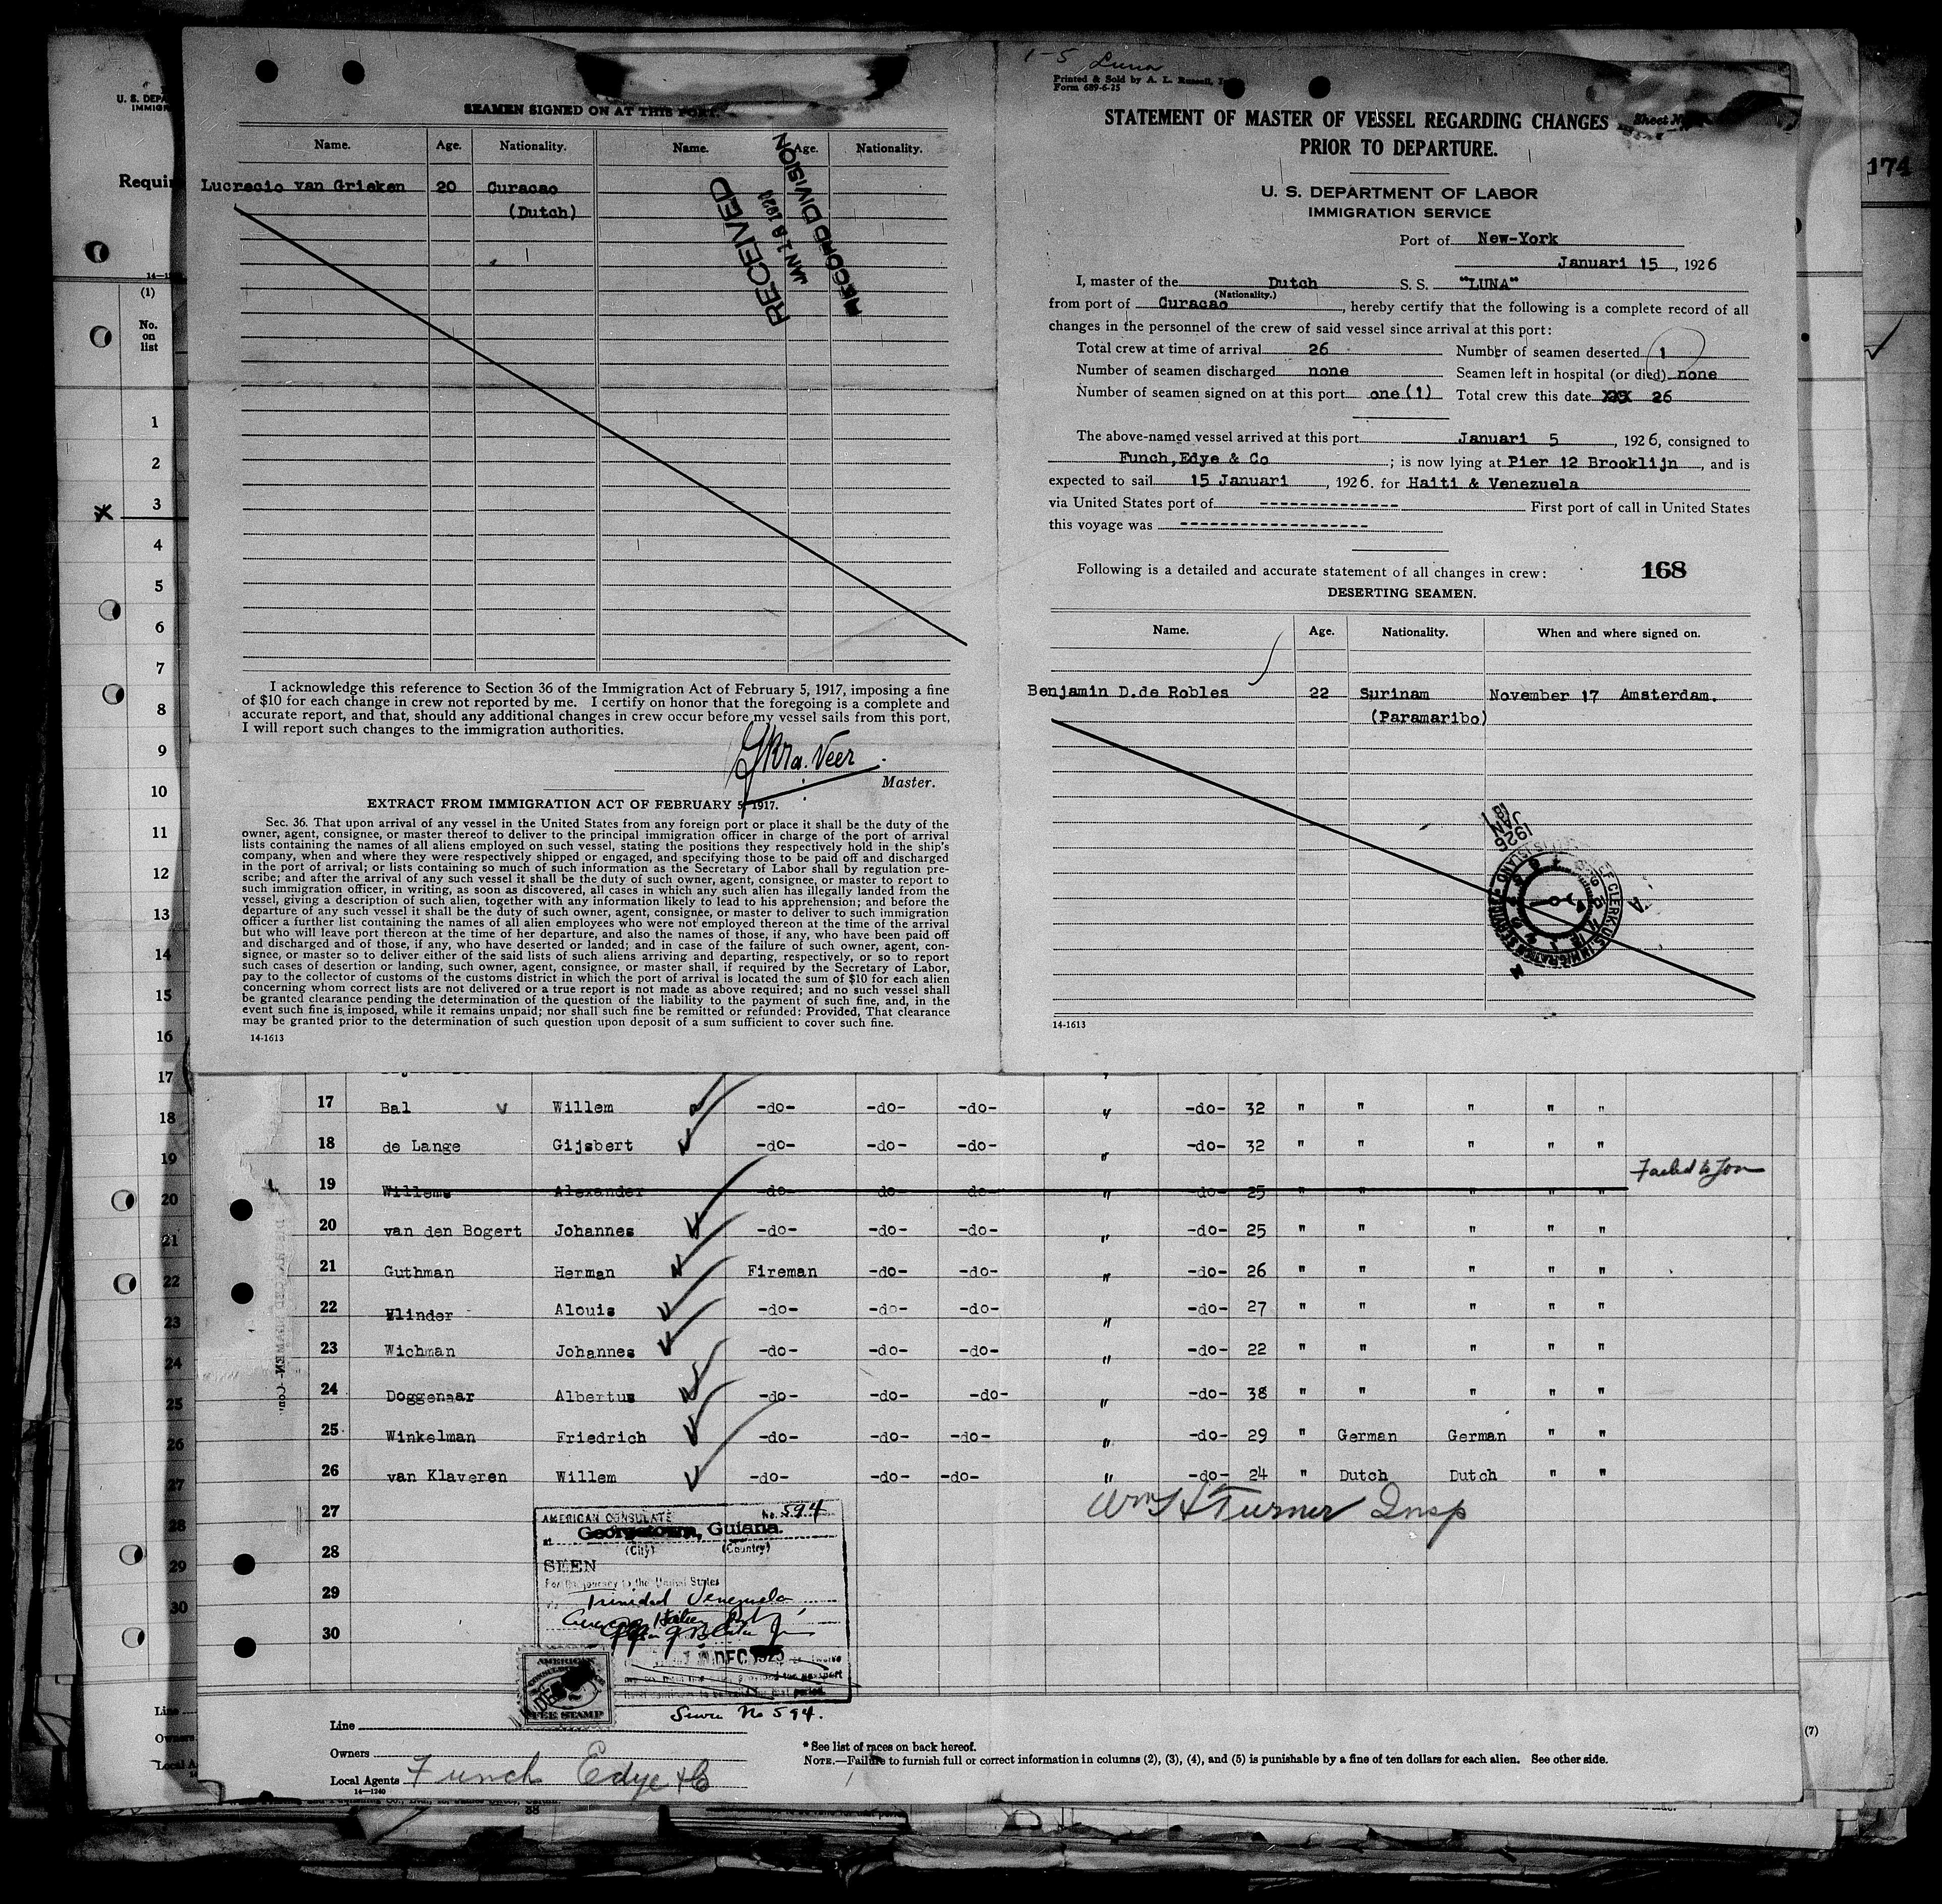 U. S. DEPA
IMMIGR
Requir
14—1
(1)
No.
on
list
1
2
3
4
5
6
7
8
9
10
11
12
13
14
15
16
17
18
19
20
21
22
23
24
25
26
27
28
29
30
SEAMEN SIGNED ON AT THIS PORT.
Name. Age. Nationality. Name. Age. Nationality.
Lucrecio van Grieken 20 Curacao
(Dutch)
RECEIVED
JAN 16 192
RECORD DIVISION
I acknowledge this reference to Section 36 of the Immigration Act of February 5, 1917, imposing a fine
of $10 for each change in crew not reported by me. I certify on honor that the foregoing is a complete and
accurate report, and that, should any additional changes in crew occur before my vessel sails from this port,
I will report such changes to the immigration authorities.
Veer
Master.
EXTRACT FROM IMMIGRATION ACT OF FEBRUARY 5, 1917.
Sec. 36. That upon arrival of any vessel in the United States from any foreign port or place it shall be the duty of the
owner, agent, consignee, or master thereof to deliver to the principal immigration officer in charge of the port of arrival
lists containing the names of all aliens employed on such vessel, stating the positions they respectively hold in the ship's
company, when and where they were respectively shipped or engaged, and specifying those to be paid off and discharged
in the port of arrival; or lists containing so much of such information as the Secretary of Labor shall by regulation pre-
scribe; and after the arrival of any such vessel it shall be the duty of such owner, agent, consignee, or master to report to
such immigration officer, in writing, as soon as discovered, all cases in which any such alien has illegally landed from the
vessel, giving a description of such alien, together with any information likely to lead to his apprehension; and before the
departure of any such vessel it shall be the duty of such owner, agent, consignee, or master to deliver to such immigration
officer a further list containing the names of all alien employees who were not employed thereon at the time of the arrival
but who will leave port thereon at the time of her departure, and also the names of those, if any, who have been paid off
and discharged and of those, if any, who have deserted or landed; and in case of the failure of such owner, agent, con-
signee, or master so to deliver either of the said lists of such aliens arriving and departing, respectively, or so to report
such cases of desertion or landing, such owner, agent, consignee, or master shall, if required by the Secretary of Labor,
pay to the collector of customs of the customs district in which the port of arrival is located the sum of $10 for each alien
concerning whom correct lists are not delivered or a true report is not made as above required; and no such vessel shall
be granted clearance pending the determination of the question of the liability to the payment of such fine, and, in the
event such fine is imposed, while it remains unpaid; nor shall such fine be remitted or refunded: Provided, That clearance
may be granted prior to the determination of such question upon deposit of a sum sufficient to cover such fine.
14-1613
1-5 Luna
Printed & Sold by A. L. Russell,
Form 689-6-25
STATEMENT OF MASTER OF VESSEL REGARDING CHANGES
PRIOR TO DEPARTURE.
Sheet N
174
U. S. DEPARTMENT OF LABOR
IMMIGRATION SERVICE
Port of New-York
Januari 15, 1926
I, master of the Dutch S. S. "LUNA"
(Nationality.)
from port of Curacao, hereby certify that the following is a complete record of all
changes in the personnel of the crew of said vessel since arrival at this port:
Total crew at time of arrival 26 Number of seamen deserted 1
Number of seamen discharged none Seamen left in hospital (or died) none
Number of seamen signed on at this port one(1) Total crew this date XXX 26
The above-named vessel arrived at this port Januari 5, 1926, consigned to
Funch,Edye & Co; is now lying at Pier 12 Brooklijn, and is
expected to sail 15 Januari, 1926. for Haiti & Venezuela
via United States port of -------------- First port of call in United States
this voyage was -------------------
Following is a detailed and accurate statement of all changes in crew: 168
DESERTING SEAMEN.
Name. Age. Nationality. When and where signed on.
Benjamin D.de Robles 22 Surinam November 17 Amsterdam.
(Paramaribo)
14-1613
17 Bal v Willem -do- -do- -do- " -do- 32 " " " " "
18 de Lange Gijsbert -do- -do- -do- " -do- 32 " " " " "
19 Willems Alexander -do- -do- -do- " -do- 25 " " " " " Failed to Join
20 van den Bogert Johannes -do- -do- -do- " -do- 25 " " " " "
21 Guthman Herman Fireman -do- -do- " -do- 26 " " " " "
22 Elinder Alouis -do- -do- -do- " -do- 27 " " " " "
23 Wichman Johannes -do- -do- -do- " -do- 22 " " " " "
24 Doggenaar Albertus -do- -do- -do- " -do- 38 " " " " "
25 Winkelman Friedrich -do- -do- -do- " -do- 29 " German German " "
26 van Klaveren Willem -do- -do- -do- " -do- 24 " Dutch Dutch " "
27
Wm H Turner Insp
28
29
30
AMERICAN CONSULATE No. 594
at Georgetown, Guiana.
(City) (Country)
SEEN
For the journey to the United States
Trinidad Venezuela
DEC 1925
AMERICAN
FEE STAMP
No 594.
Line
Owners
Local Agents Funch Edye & Co
14—1240
* See list of races on back hereof.
NOTE.—Failure to furnish full or correct information in columns (2), (3), (4), and (5) is punishable by a fine of ten dollars for each alien. See other side.
(7)
Line
Owners
Local A
88